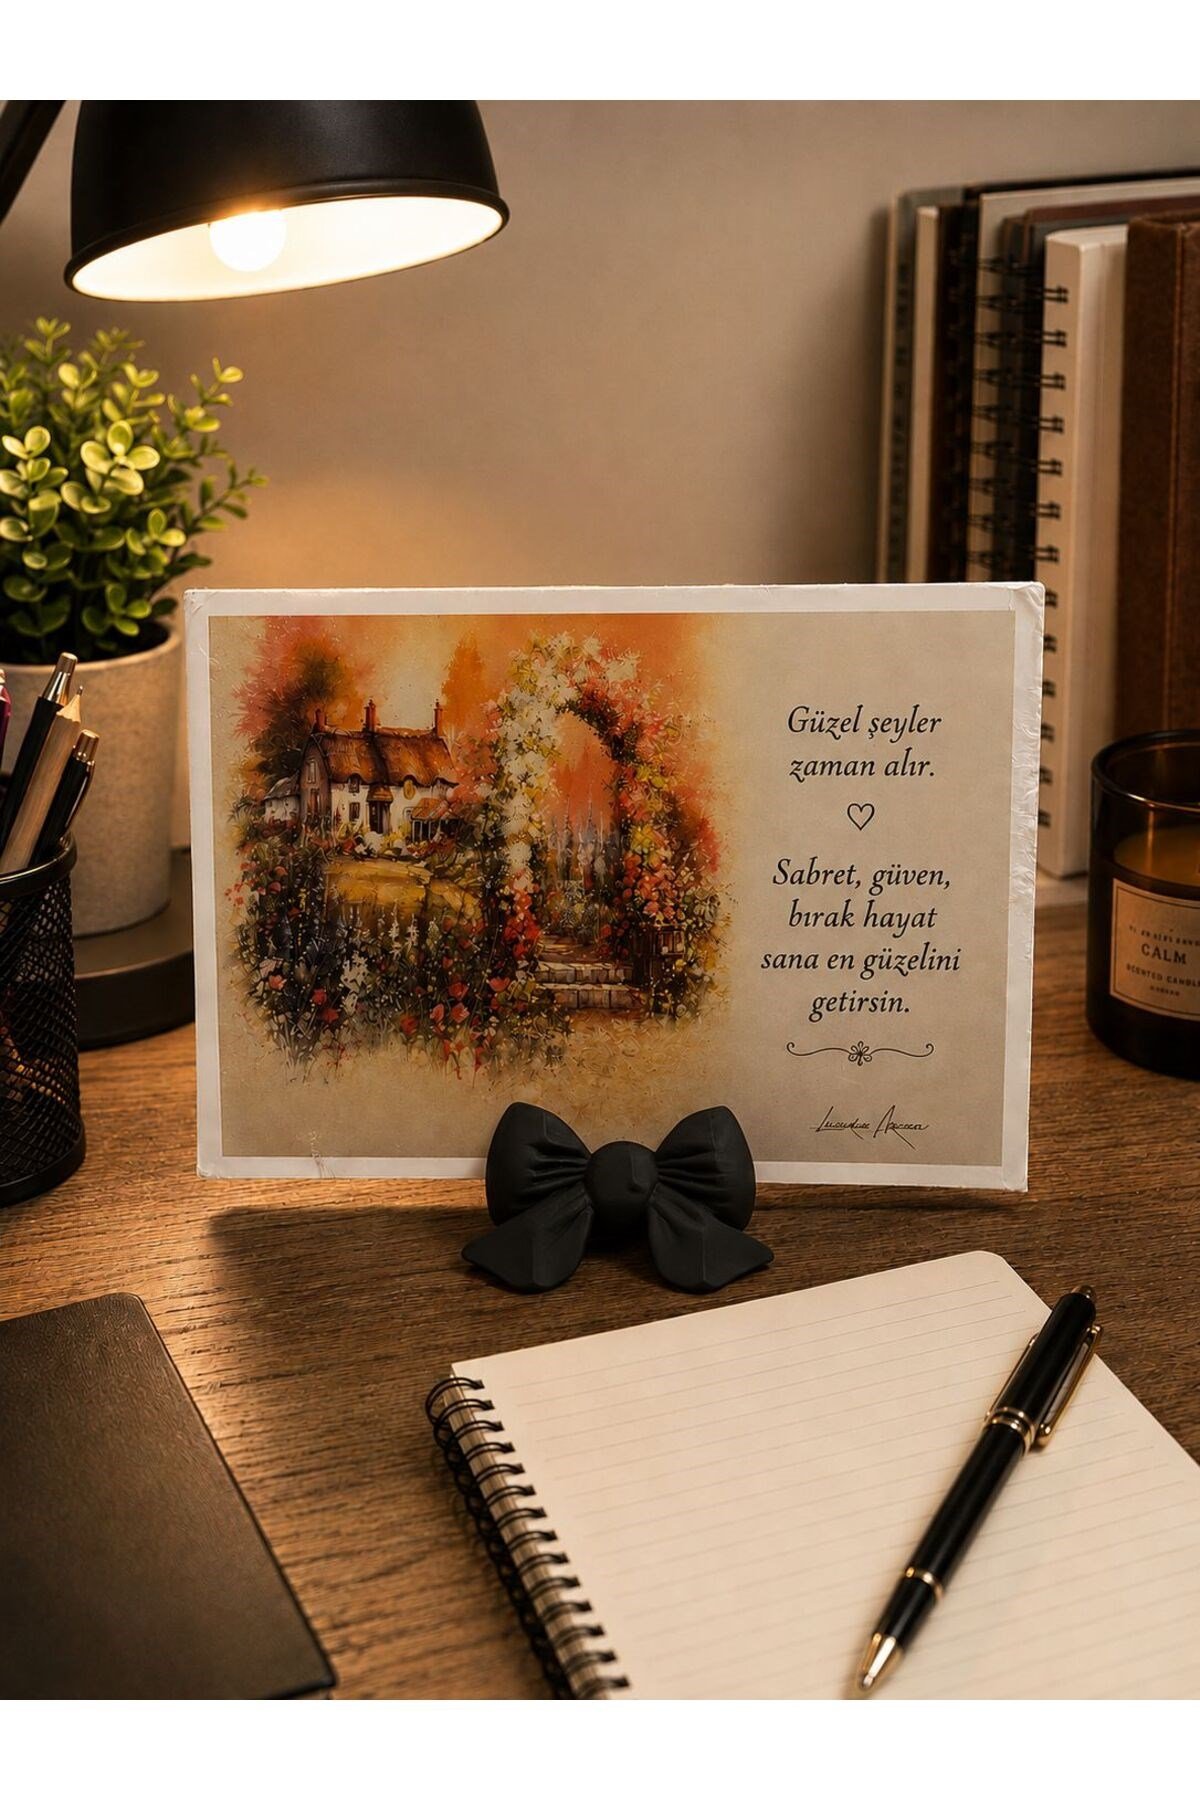 Güzel şeyler
zaman alır.
Sabret, güven,
bırak hayat
sana en güzelini
getirsin.
CALM
SCENTED CANDLE